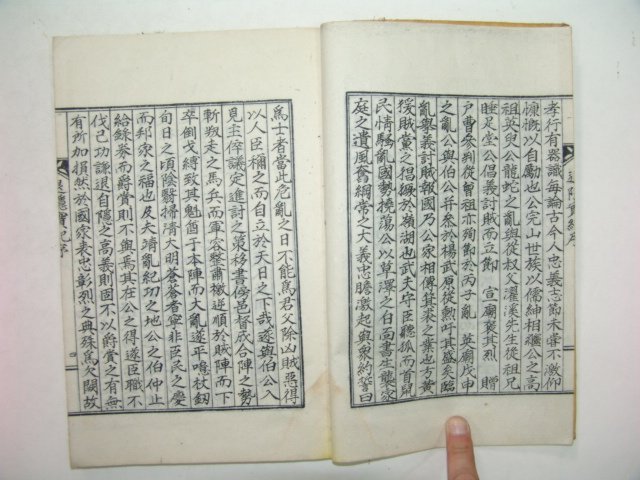 孝行有器識每論古今人忠義志節未嘗不激仰
慷慨以自勵也公完山世族以儒紳相繼公之高
祖英叟公龍蛇之亂與從叔父濯溪先生從祖兄
睡足堂公倡義討賊而立節 宣廟褒其烈 贈
戶曹參判從曾祖亦殉節於丙子亂 英廟戊申
之亂公與伯公幷參於楊武原從勳吁其盛矣臨
亂擧義討賊報國乃公家相傳箕裘之業也方黃
授賊黨之猖獗於嶺湖也武夫守臣聽狐而首鼠
民情騷亂國勢撓蕩公以草澤之白面書生襲家
庭之遺風奮綱常之大義忠膽激起與衆約誓曰
爲士者當此危亂之日不能爲君父除凶賊惡得
以人臣稱之而自立於天日之下哉遂與伯公入
見主倅議定進討之策移書傍邑督成合陣之勢
斬叛走之馬兵而軍容整肅檄逆順於賊陣而下
卒倒戈縛致其魁酋于本陣而大亂遂平鳴杖劒
旬日之頃陰翳掃清大明蒼蒼者寧非臣民之慶
而邦家之福也及夫清亂紀功之地公之伯仲止
給錄券而爵賞則不與焉其在公之得遂臣職不
伐己功謙退自隱之高義則固不以爵賞之有無
有所加損然於國家表忠彰烈之典殊爲欠闕故
遯隱實紀序
四